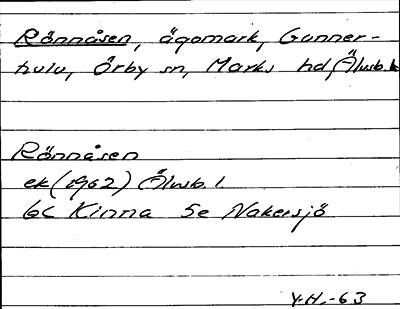 Rönnåsen, ägomark, Gunner-
hulu, Örby sn, Marks hd, Älvsb. l.
Rönnåsen
ek (1962) Älvsb. l
6c Kinna 5e Nakersjö
Y.H.-63